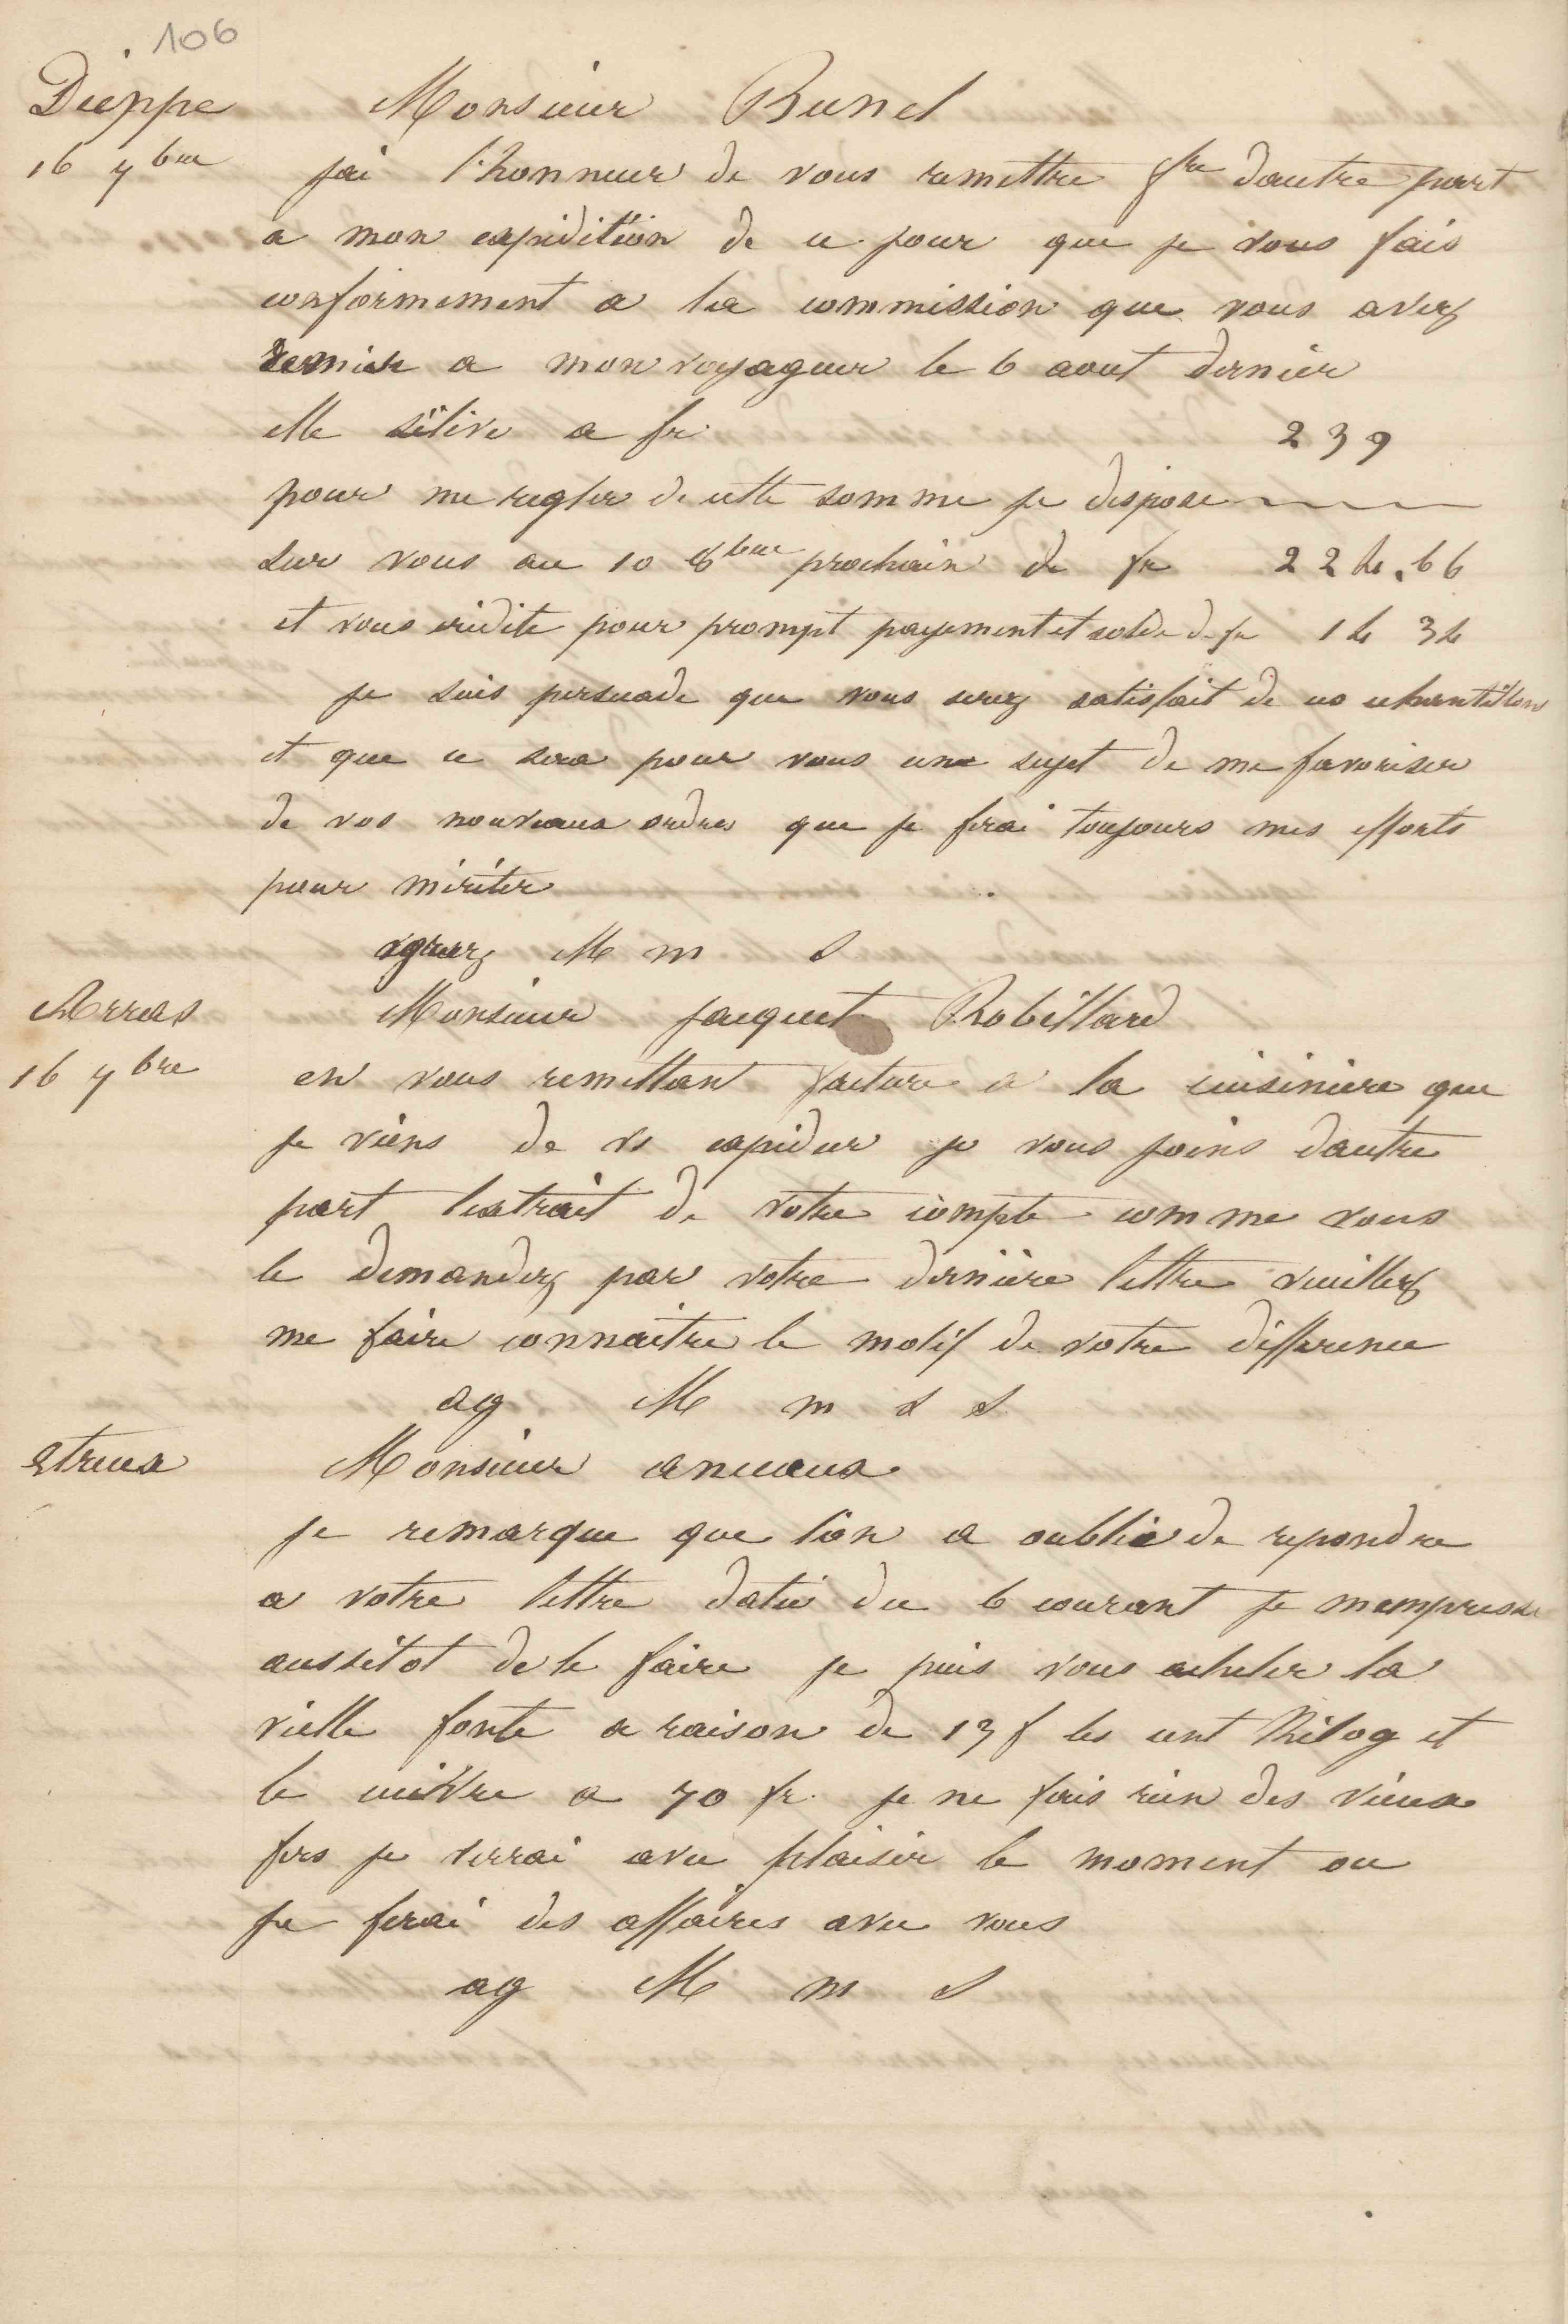 106
Dieppe Monsieur Bunel
16 7bre jai l'honneur de vous remettre fre dautre part
a mon expédition de ce jour que je vous fais
conformement a la commission que vous avez
remise a mon voyageur le 6 aout dernier
elle s'élève a fr. 239
pour me regler de cette somme je dispose
sur vous au 10 8bre prochain de fr 224.66
et vous crédite pour prompt payement et solde de fr 14 34
je suis persuade que vous serez satisfait de ces echantillons
et que ce sera pour vous une sujet de me favoriser
de vos nouveaux ordres que je ferai toujours mes efforts
pour mériter
agreez M m S
Arras Monsieur jacquet Robillard
16 7bre en vous remettan facture a la cuisiniere que
je viens de vs expedier je vous joins dautre
part lextrait de votre compte comme vous
le demandez par votre dernière lettre veuillez
me faire connaitre le motif de votre difference
ag M m s S
Etreux Monsieur anceaux
je remarque que l'on a oublié de repondre
a votre lettre datée du 6 courant je mempresse
aussitot de le faire je puis vous acheter la
vielle fonte a raison de 13 f les cent Kilog et
le cuivre a 70 fr. je ne fais rien des vieux
fers je verrai avec plaisir le moment ou
je ferai des affaires avec vous
ag M m S